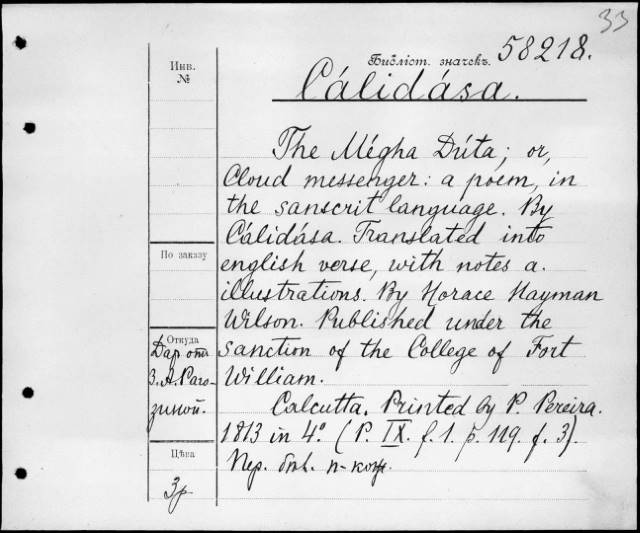 33
Библіот. значекъ. 58218.
Инв.
№
Cálidása.
The Mégha Dúta; or,
Cloud messenger: a poem, in
the sanscrit language. By
Cálidása. Translated into
english verse, with notes a.
illustrations. By Horace Hayman
Wilson. Published under the
sanction of the College of Fort
William.
Calcutta. Printed by P. Pereira.
1813 in 4º. (P. IX. f. 1. p. 119. f. 3).
Пер. бѣл. п-кож.
По заказу
Откуда
Дар отъ
З. А. Раго-
зиной.
Цѣна
3р